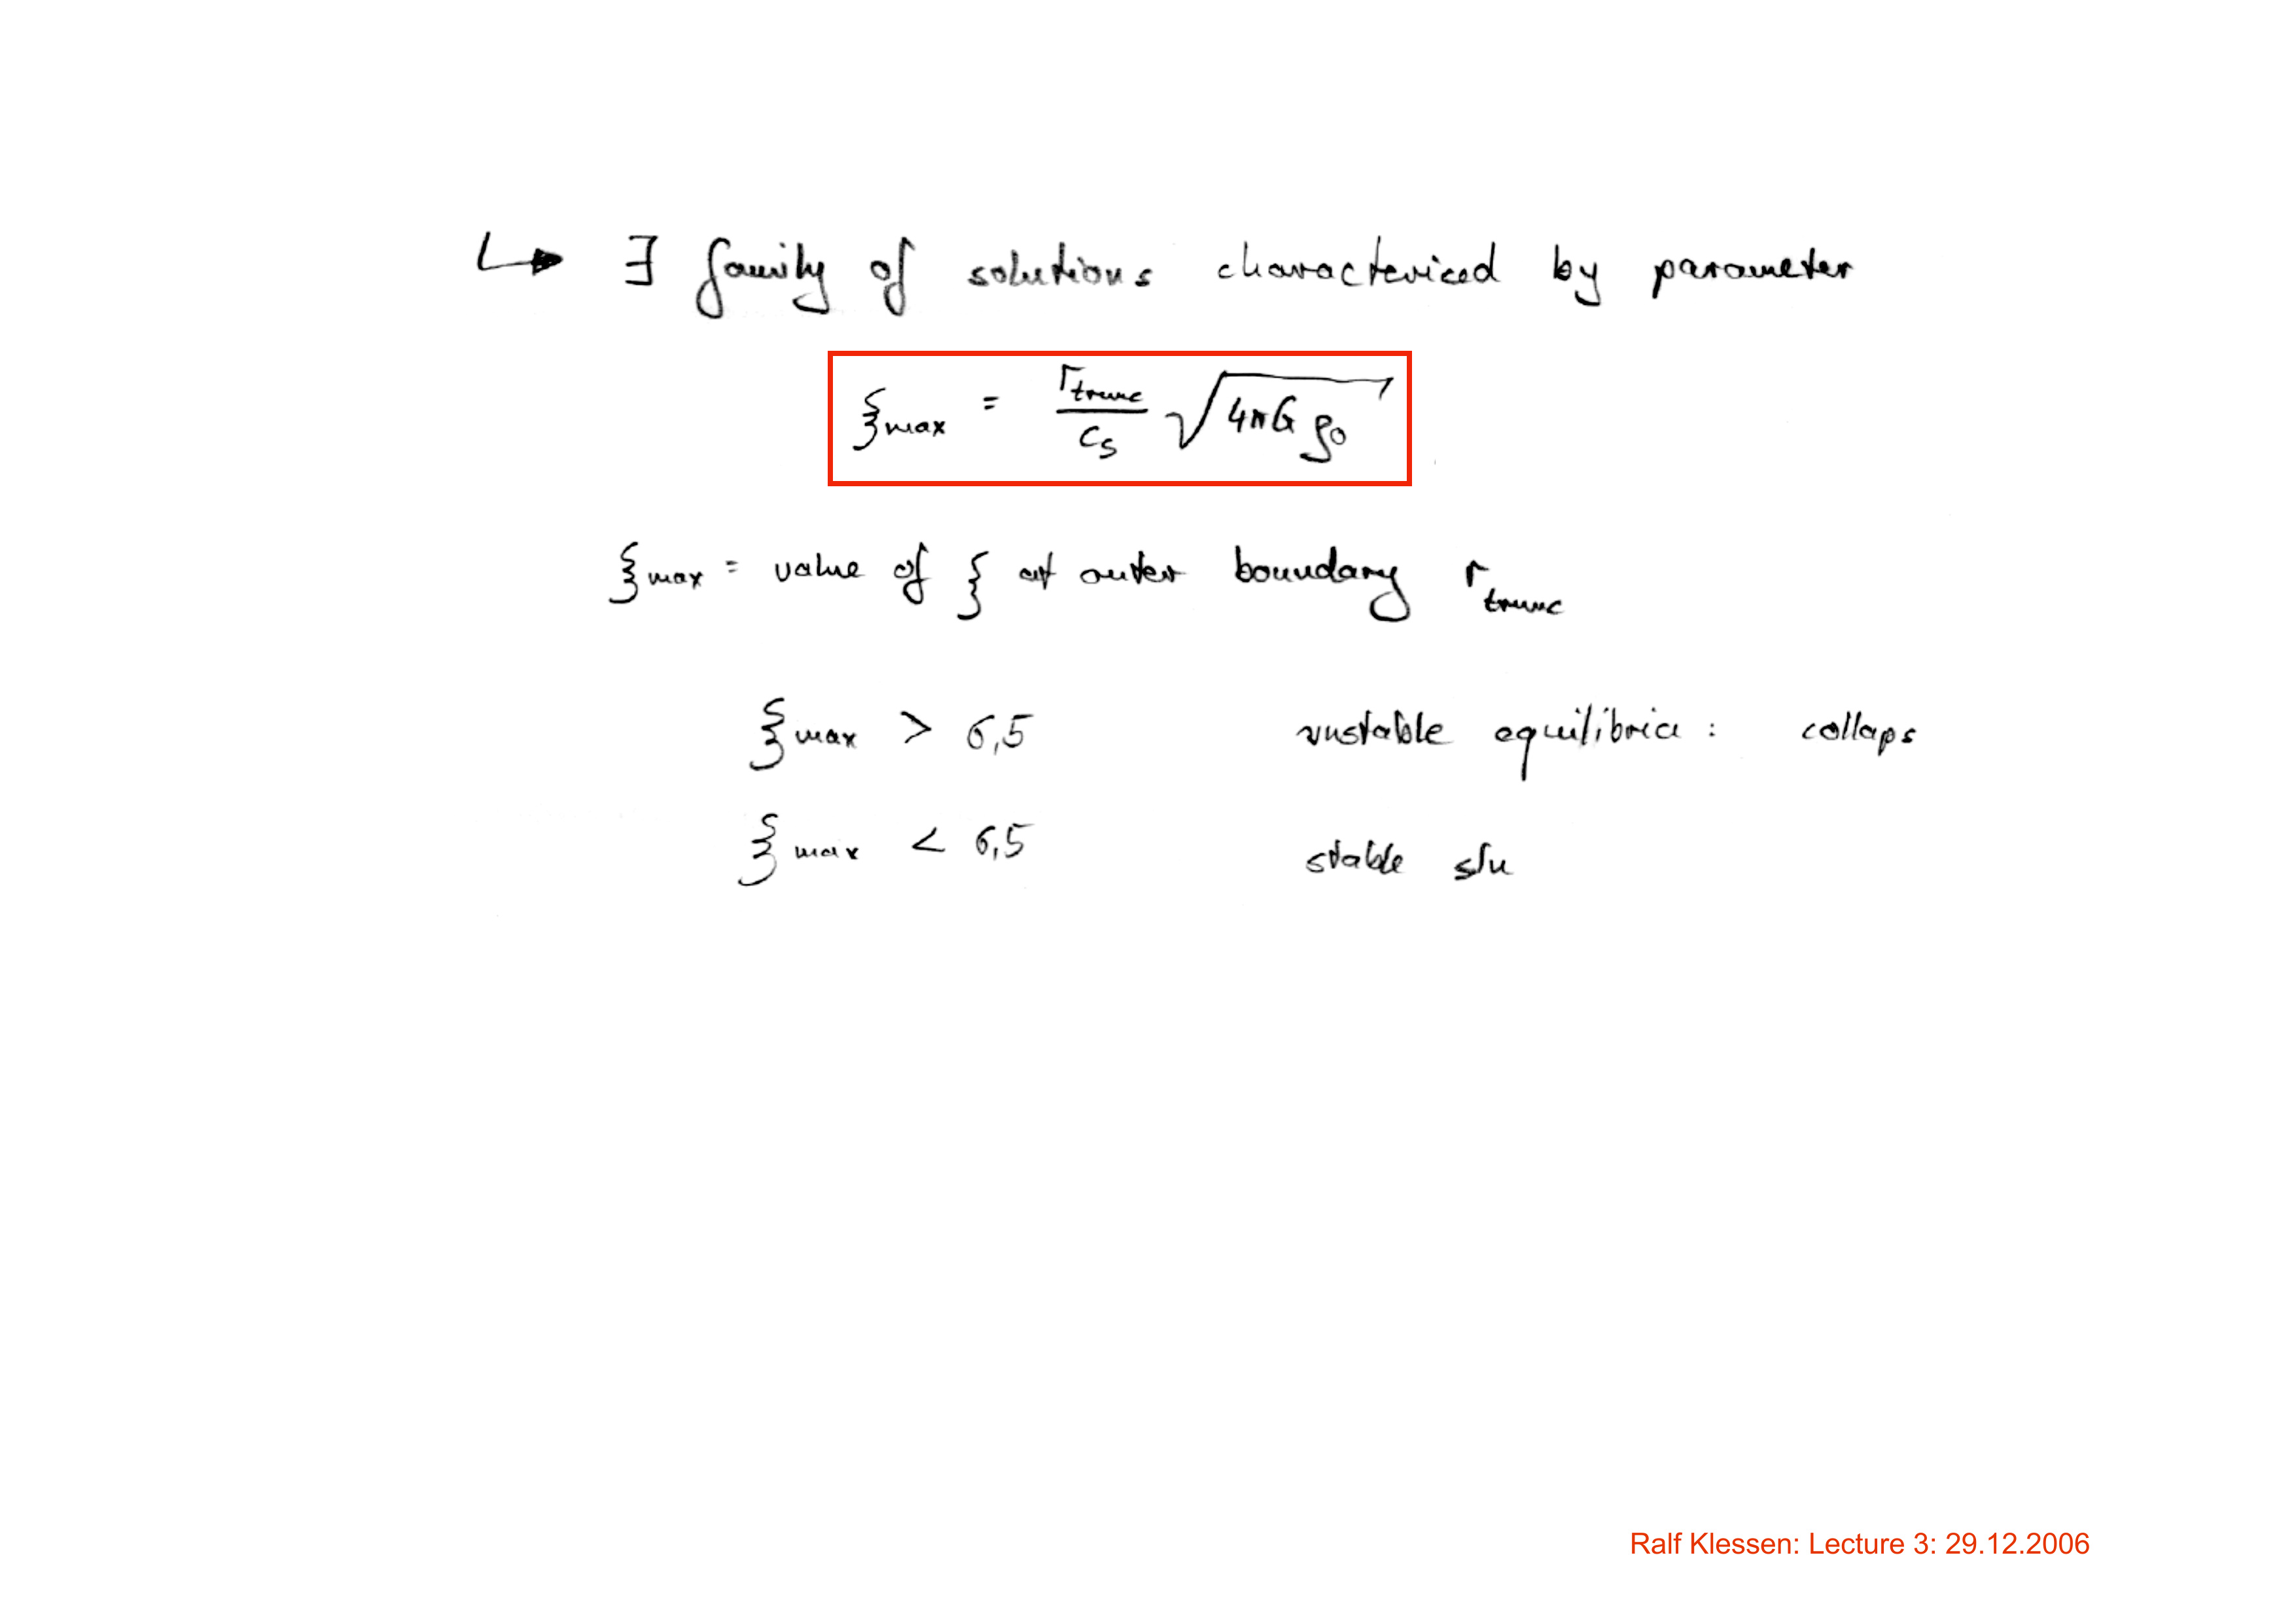 ↳ ∃ family of solutions characterized by parameter
ξmax = rtrunc/cs √(4πGρ0)
ξmax = value of ξ at outer boundary rtrunc
ξmax > 6,5 unstable equilibria : collaps
ξmax < 6,5 stable sln
Ralf Klessen: Lecture 3: 29.12.2006